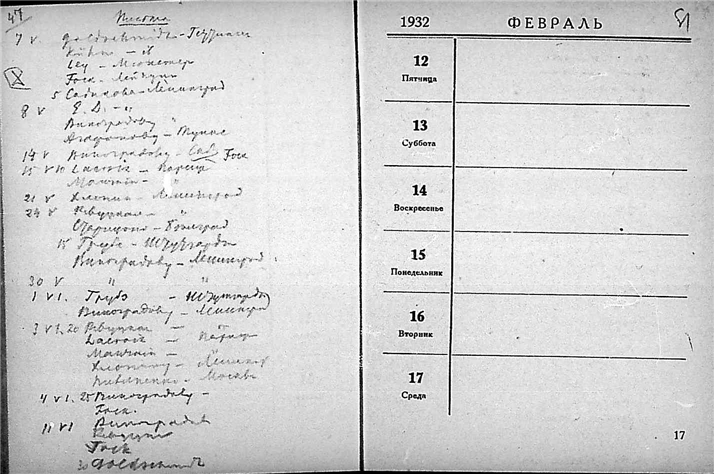 47
Письма
7 V. Goldschmidt - Геттинген
Kühne - "
Ley - Мюнстер
Fock - Лейпциг
5 Садикова - Ленинград
8 V Е. Д. - "
Виноградову "
Агафонову - Тунис
14 V Виноградову - Fock
15 V 10 Lacroix - Париж
21 V Хлопин - Ленинград
24 V Ревуцкая - "
Старицкого - Белград
15 Грубе - Штутгарт
Виноградову - Ленинград
30 V " "
1 VI. Грубэ - Штутгарт
Виноградову - Ленинград
3 VI. 20 Ревуцкая -
Lacroix - Париж
Хлопину - Ленинград
- Москва
4 VI. 25 Виноградову -
Fock.
11 VI Виноградов
Fock
30 Goldschmidt
1932 ФЕВРАЛЬ
51
12
Пятница
13
Суббота
14
Воскресенье
15
Понедельник
16
Вторник
17
Среда
17